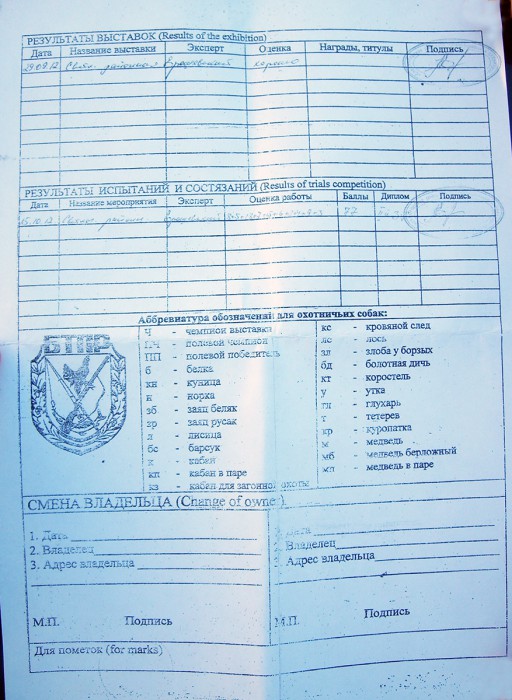 РЕЗУЛЬТАТЫ ВЫСТАВОК (Results of the exhibition)
Дата Название выставки Эксперт Оценка Награды, титулы Подпись
хорошо
РЕЗУЛЬТАТЫ ИСПЫТАНИЙ И СОСТЯЗАНИЙ (Results of trials competition)
Дата Название мероприятия Эксперт Оценка работы Баллы Диплом Подпись
77
Аббревиатура обозначений для охотничьих собак:
БТПР
Ч - чемпион выставки
ПЧ - полевой чемпион
ПП - полевой победитель
б - белка
кн - куница
н - норка
зб - заяц беляк
зр - заяц русак
л - лисица
бс - барсук
к - кабан
кп - кабан в паре
кз - кабан для загонной охоты
кс - кровяной след
лс - лось
зл - злоба у борзых
бд - болотная дичь
кт - коростель
у - утка
гл - глухарь
т - тетерев
кр - куропатка
м - медведь
мб - медведь берложный
мп - медведь в паре
СМЕНА ВЛАДЕЛЬЦА (Change of owner)
1. Дата
2. Владелец
3. Адрес владельца
М.П. Подпись
1. Дата
2. Владелец
3. Адрес владельца
М.П. Подпись
Для пометок (for marks)